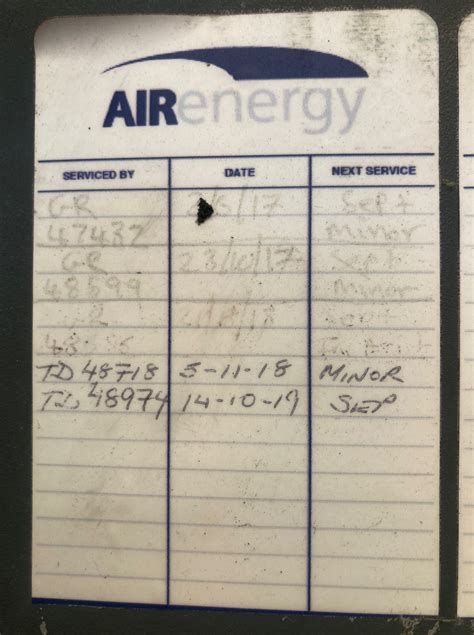 AIRenergy
SERVICED BY DATE NEXT SERVICE
GR 2/5/17 Sept
47432 Minor
GR 23/10/17 Sept
48599 Minor
GR /18 Sept
TD 48718 5-11-18 MINOR
TD 48974 14-10-19 SEP